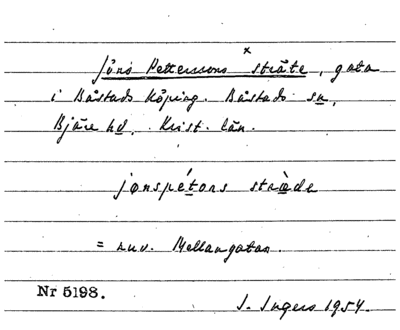 x
Jöns Petterssons sträte, gata
i Båstads köping. Båstads sn,
Bjäre hd, Krist. län.
jønspétons stræde
= nuv. Mellangatan.
Nr 5198.
I. Ingers 1954.